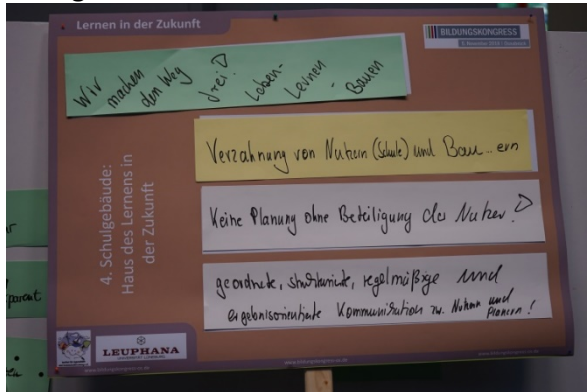 Lernen in der Zukunft
BILDUNGSKONGRESS
Wir machen den Weg frei!
Leben - Lernen - Bauen
4. Schulgebäude:
Haus des Lernens in
der Zukunft
Verzahnung von Nutzern (Schule) und Bau...ern
Keine Planung ohne Beteiligung der Nutzer!
geordnete, strukturierte, regelmäßige und
ergebnisorientierte Kommunikation zw. Nutzern und
Planern!
parent
LEUPHANA
www.bildungskongress-os.de